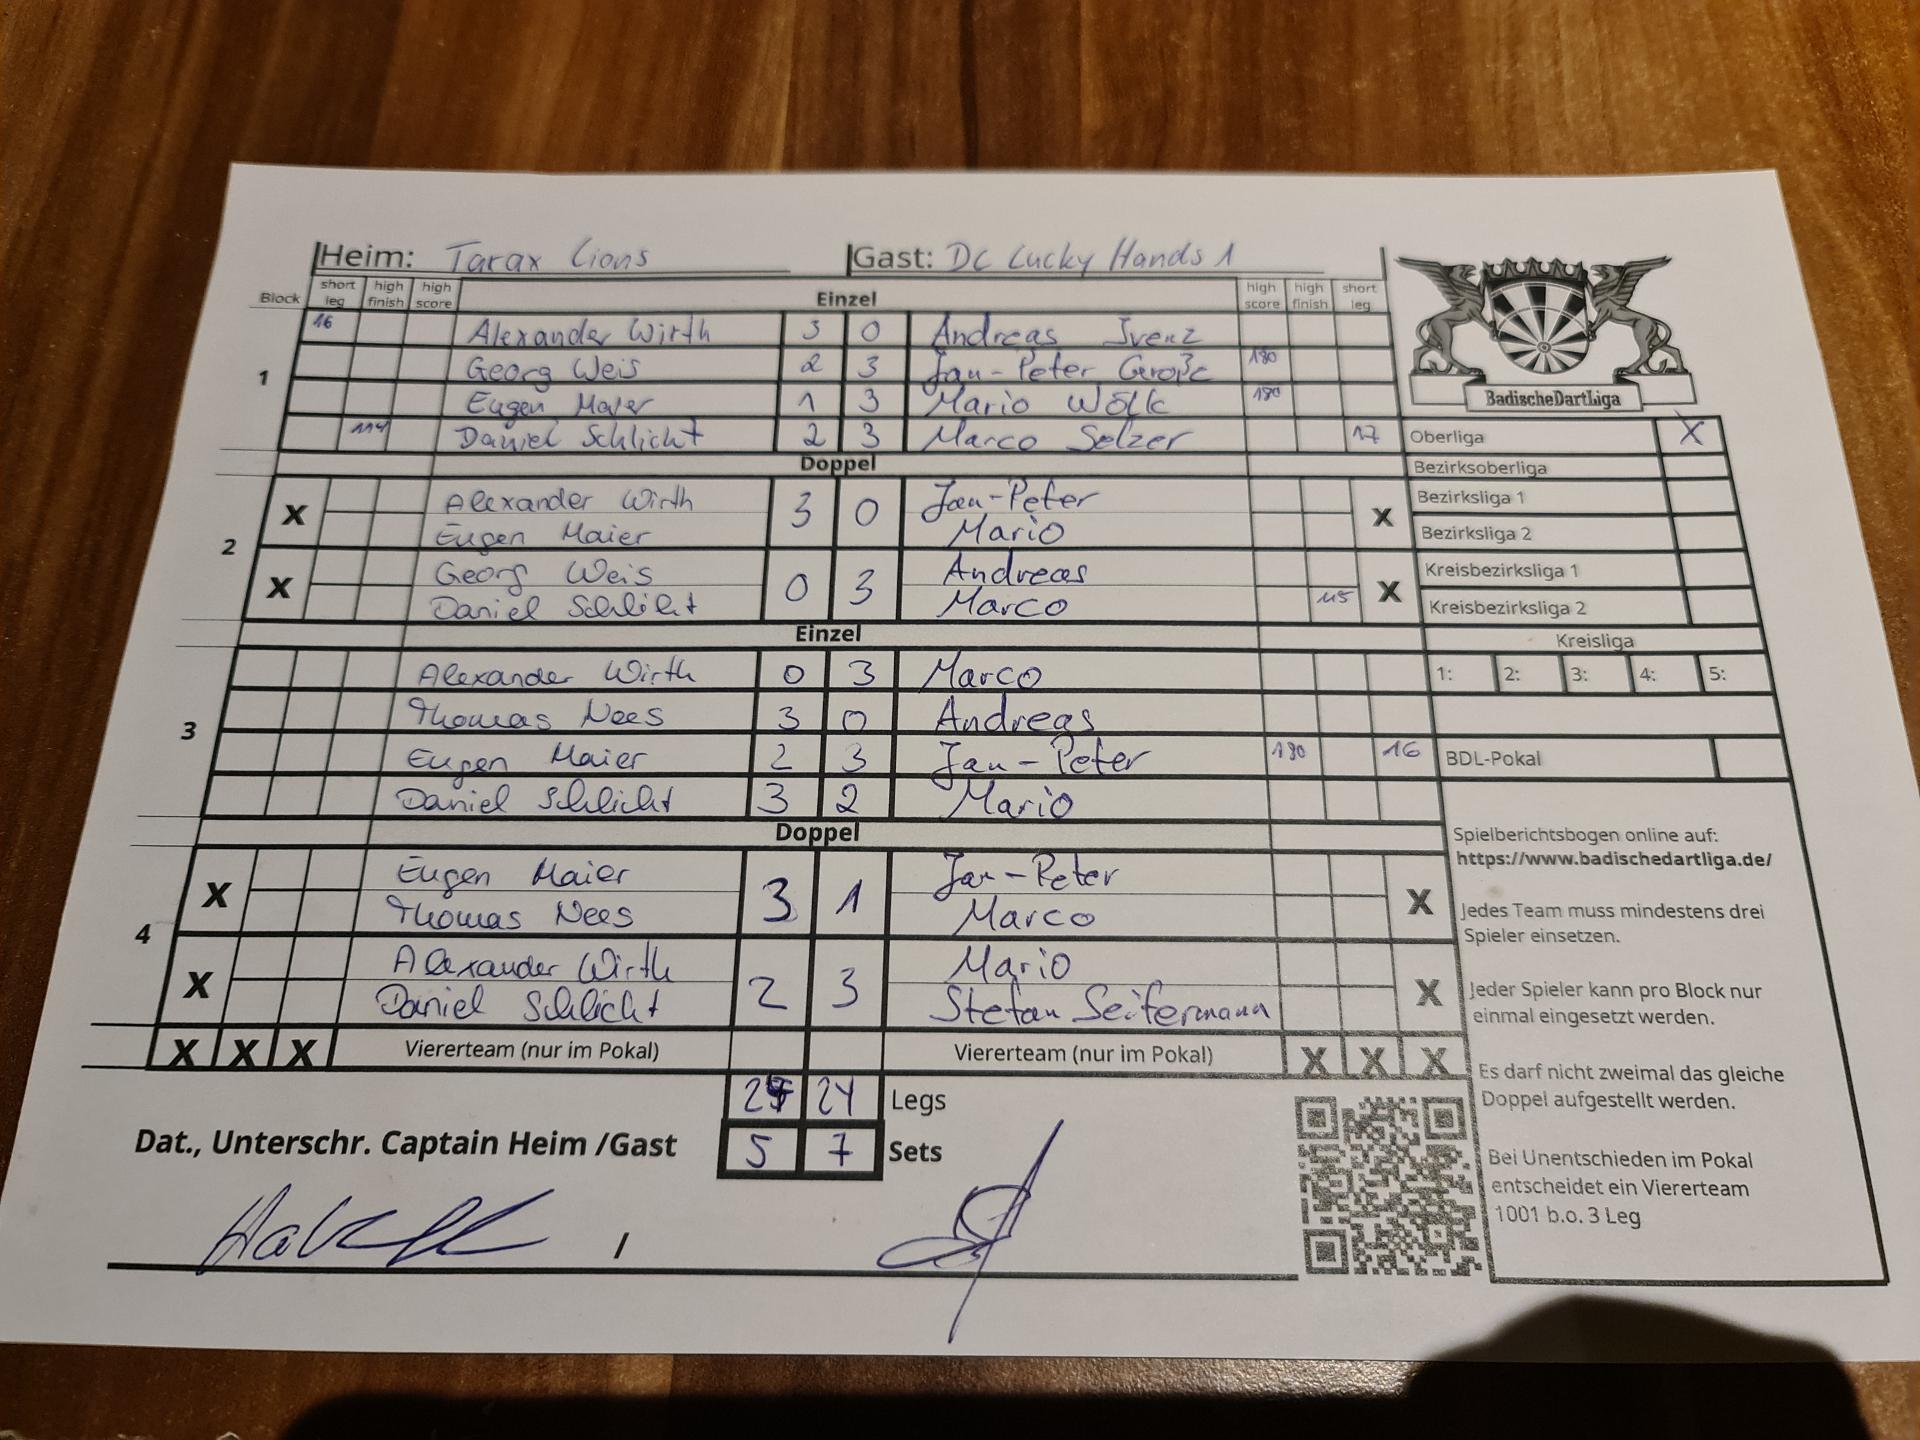 Heim: Tarax Lions Gast: DC Lucky Hands 1
Block short leg high finish high score Einzel high score high finish short leg
1
16 Alexander Wirth 3 0 Andreas Ivenz
Georg Weis 2 3 Jan-Peter Große 180
Eugen Maier 1 3 Mario Wölk 180
114 Daniel Schlicht 2 3 Marco Selzer 17
Doppel
2
X Alexander Wirth 3 0 Jan-Peter X
Eugen Maier Mario
X Georg Weis 0 3 Andreas X
Daniel Schlicht Marco 115
Einzel
3
Alexander Wirth 0 3 Marco
Thomas Nees 3 0 Andreas
Eugen Maier 2 3 Jan-Peter 180 16
Daniel Schlicht 3 2 Mario
Doppel
4
X Eugen Maier 3 1 Jan-Peter X
Thomas Nees Marco
X Alexander Wirth 2 3 Mario X
Daniel Schlicht Stefan Seifermann
X X X Viererteam (nur im Pokal) Viererteam (nur im Pokal) X X X
24 Legs
Dat., Unterschr. Captain Heim /Gast 5 7 Sets
/
BadischeDartLiga
Oberliga X
Bezirksoberliga
Bezirksliga 1
Bezirksliga 2
Kreisbezirksliga 1
Kreisbezirksliga 2
Kreisliga
1: 2: 3: 4: 5:
BDL-Pokal
Spielberichtsbogen online auf:
https://www.badischedartliga.de/
Jedes Team muss mindestens drei
Spieler einsetzen.
Jeder Spieler kann pro Block nur
einmal eingesetzt werden.
Es darf nicht zweimal das gleiche
Doppel aufgestellt werden.
Bei Unentschieden im Pokal
entscheidet ein Viererteam
1001 b.o. 3 Leg